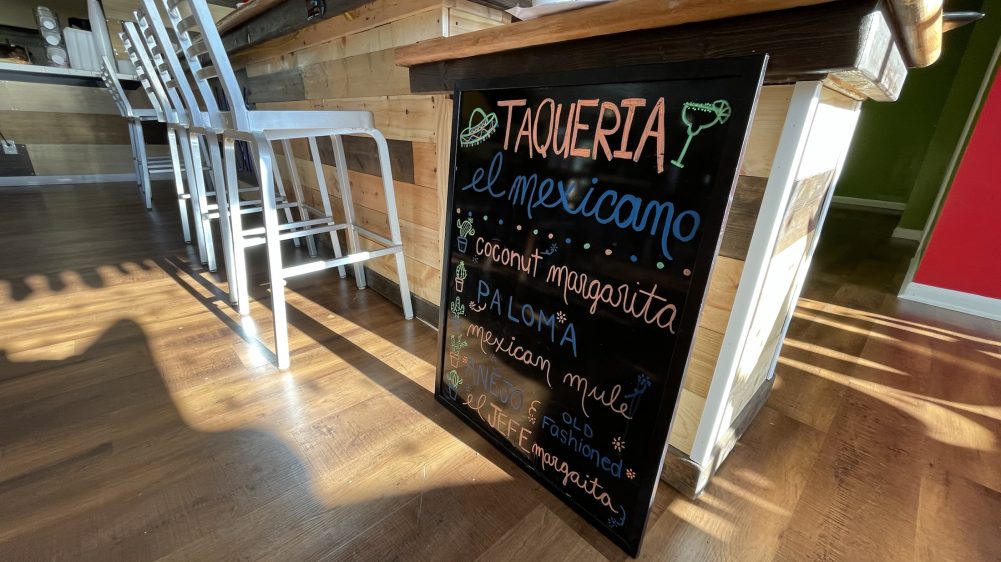 TAQUERIA
el mexicano
coconut margarita
PALOMA
mexican mule
AÑEJO
OLD
Fashioned
el JEFE margaita